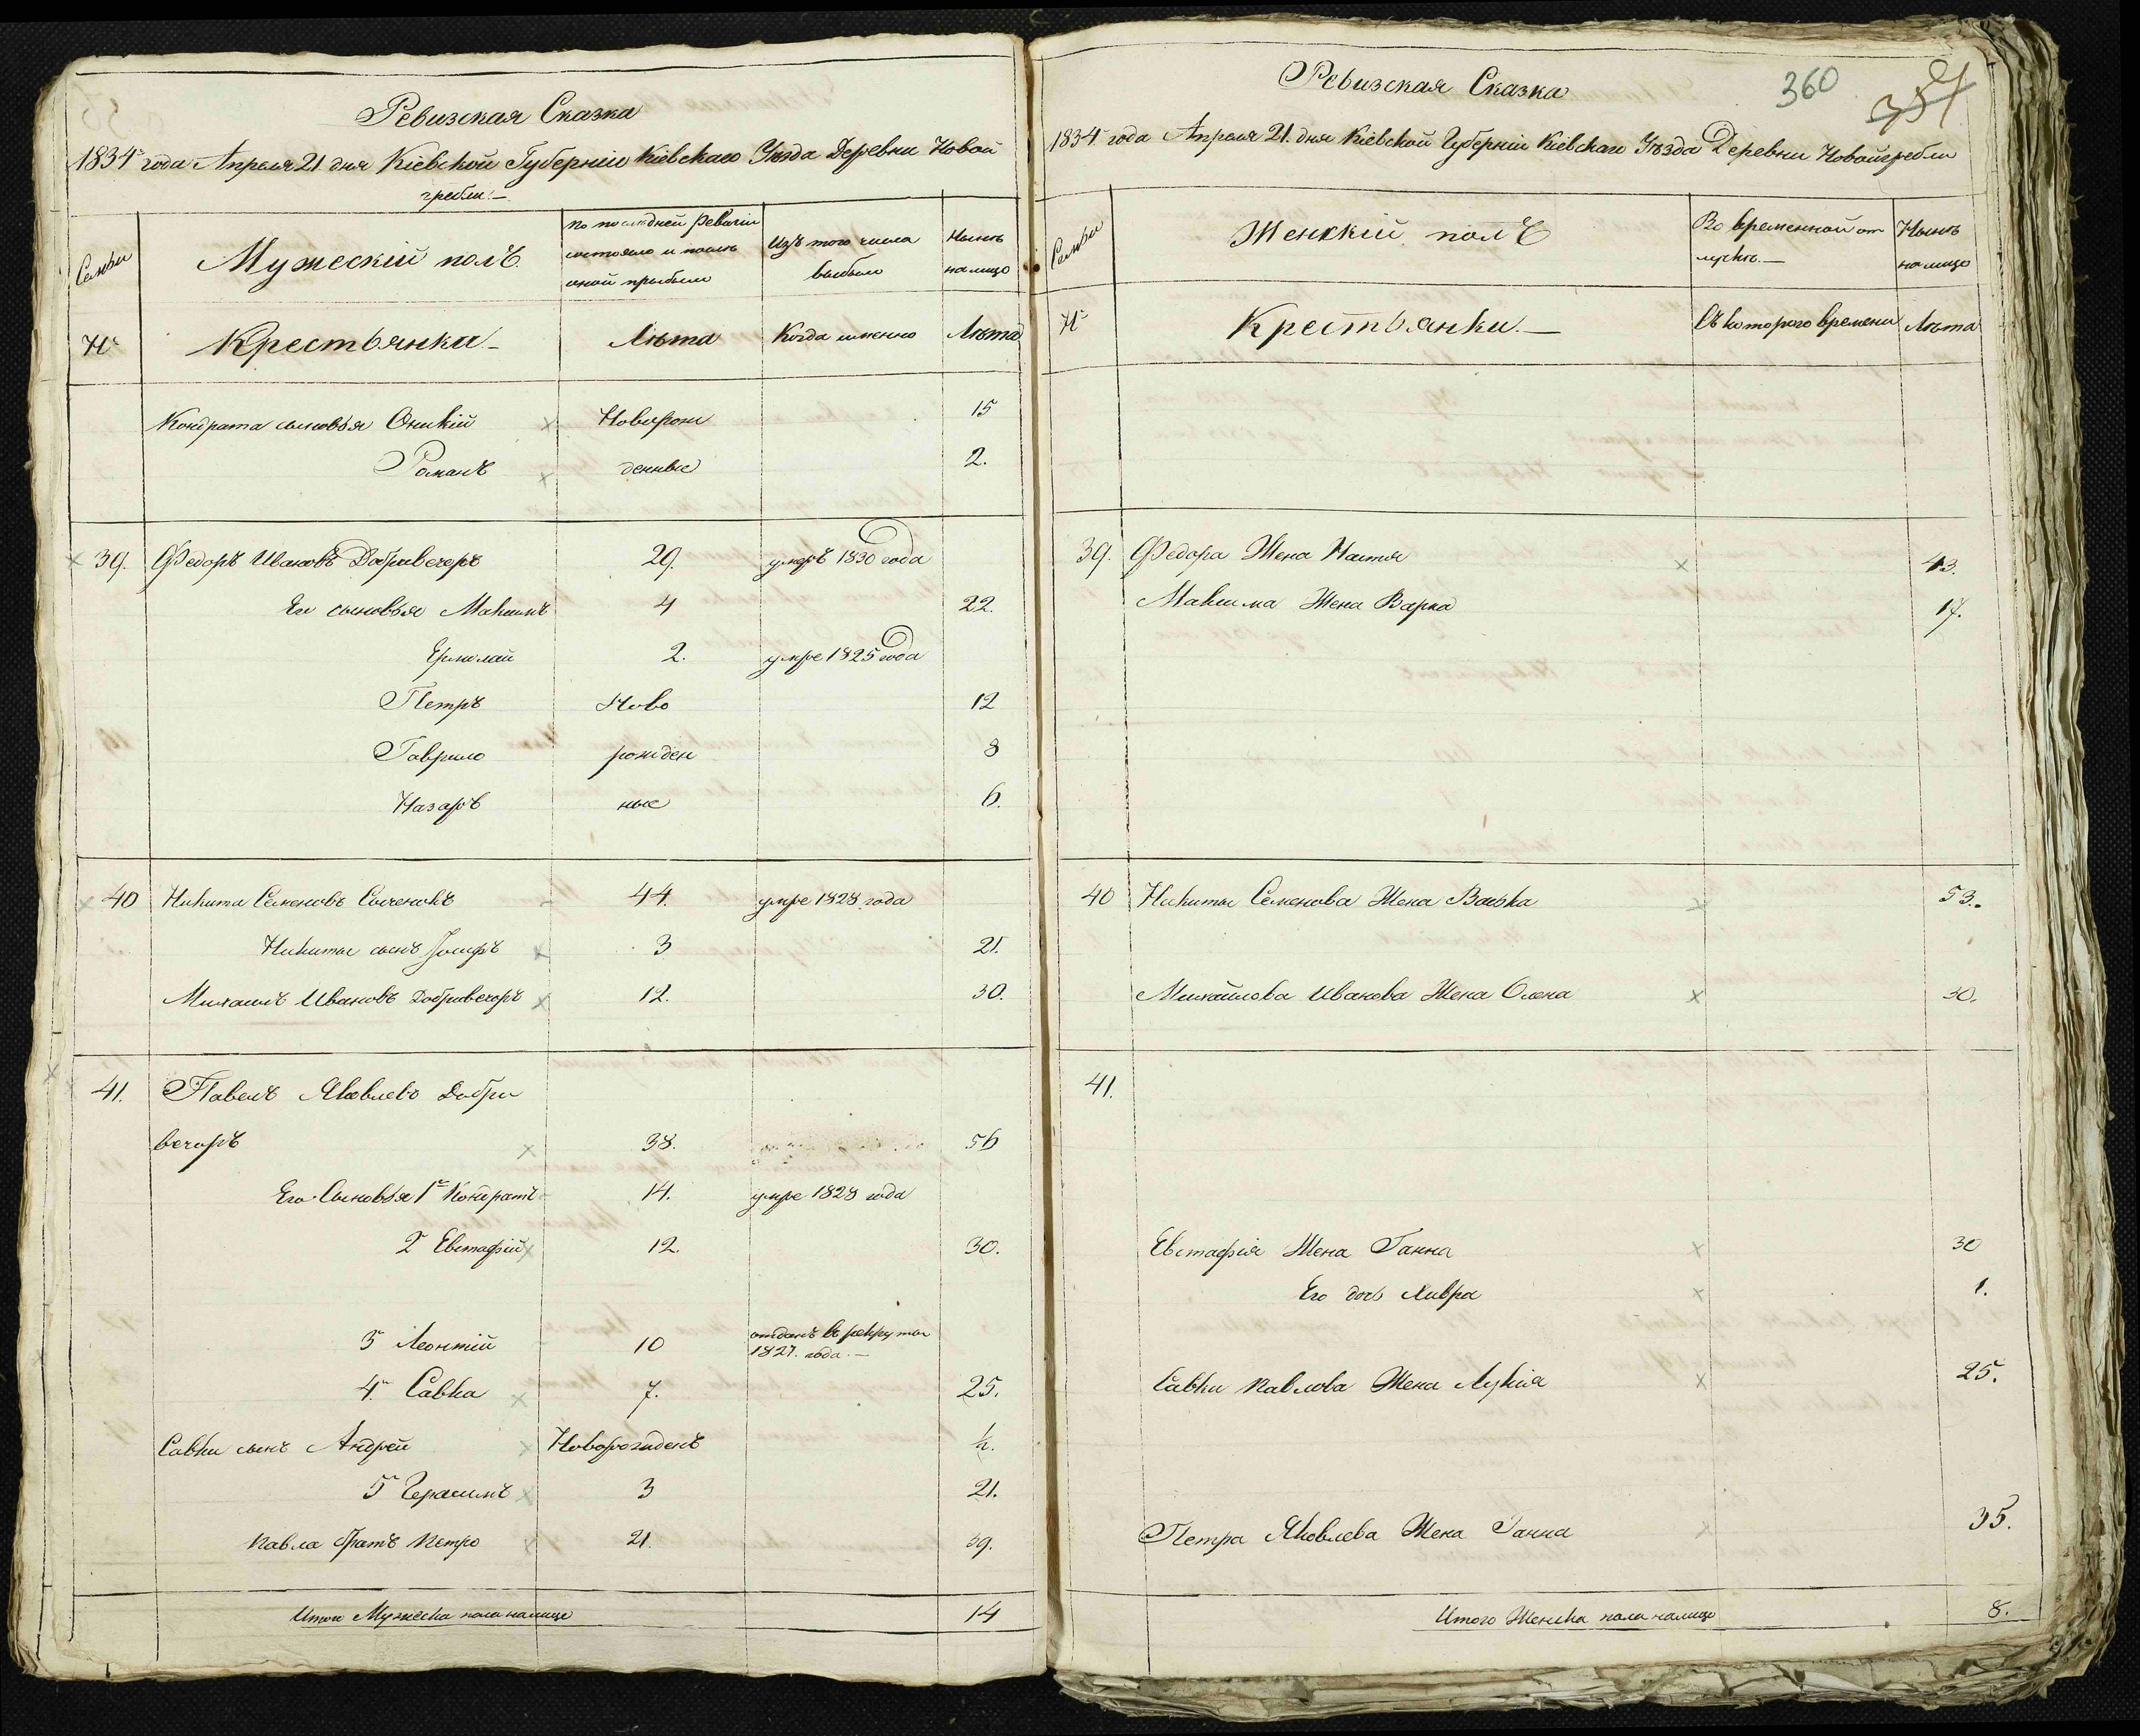 Ревизская Сказка
1834 года Апреля 21 дня Кіевской Губерніи Кіевскаго Уѣзда Деревни Новой
гребли.—
Семьи
Мужескій полъ.
По последней Ревизіи
состояло и послѣ
оной прибыло
Изъ того числа
выбыло
Нынѣ
налицо
№
Крестьянки
Лѣта
Когда именно
Лѣта
Кондрата сыновья Оникій Новорож 15
Романъ денные 2.
39. Федоръ Ивановъ Добривечеръ 29. умеръ 1830 года
Ег сыновья Максимъ 4 22.
Ермолай 2. умре 1825 года
Петръ Ново 12
Гаврило рожден 8
Назаръ ные 6.
40 Никита Семеновъ 44. умре 1828 года
Никиты сынъ Іосифъ 3 21.
Михаилъ Ивановъ Добривечоръ 12. 30.
41. Павелъ Яковлевъ Добри
вечоръ 38. 56
Его Сыновья 1й Кондратъ 14. умре 1828 года
2й Евстафій 12. 30.
3й Леонтій 10 отданъ в рекруты
1827. года.—
4й Савка 7. 25.
Савки сынъ Андрей Новорожденъ ½.
5й Герасимъ 3 21.
Павла братъ Петро 21. 39.
Итого Мужеска пола налицо 14
360
Ревизская Сказка
1834 года Апреля 21. дня Кіевской Губерніи Кіевскаго Уѣзда Деревни Новойгребли
Семьи
Женскій полъ
Во временной от
лучкѣ.—
Нынѣ
налицо
№
Крестьянки.—
Съ котораго времени
Лѣта
39. Федора Жена Настя 43.
Максима Жена Варка 17.
40 Никиты Семенова Жена Васька 53.
Михайлова Иванова Жена Олена 30.
41.
Евстафія Жена Ганна 30
Его дочь Хивра 1.
Савки Павлова Жена Лукія 25.
Петра Яковлева Жена Ганна 35.
Итого Женска пола налицо 8.